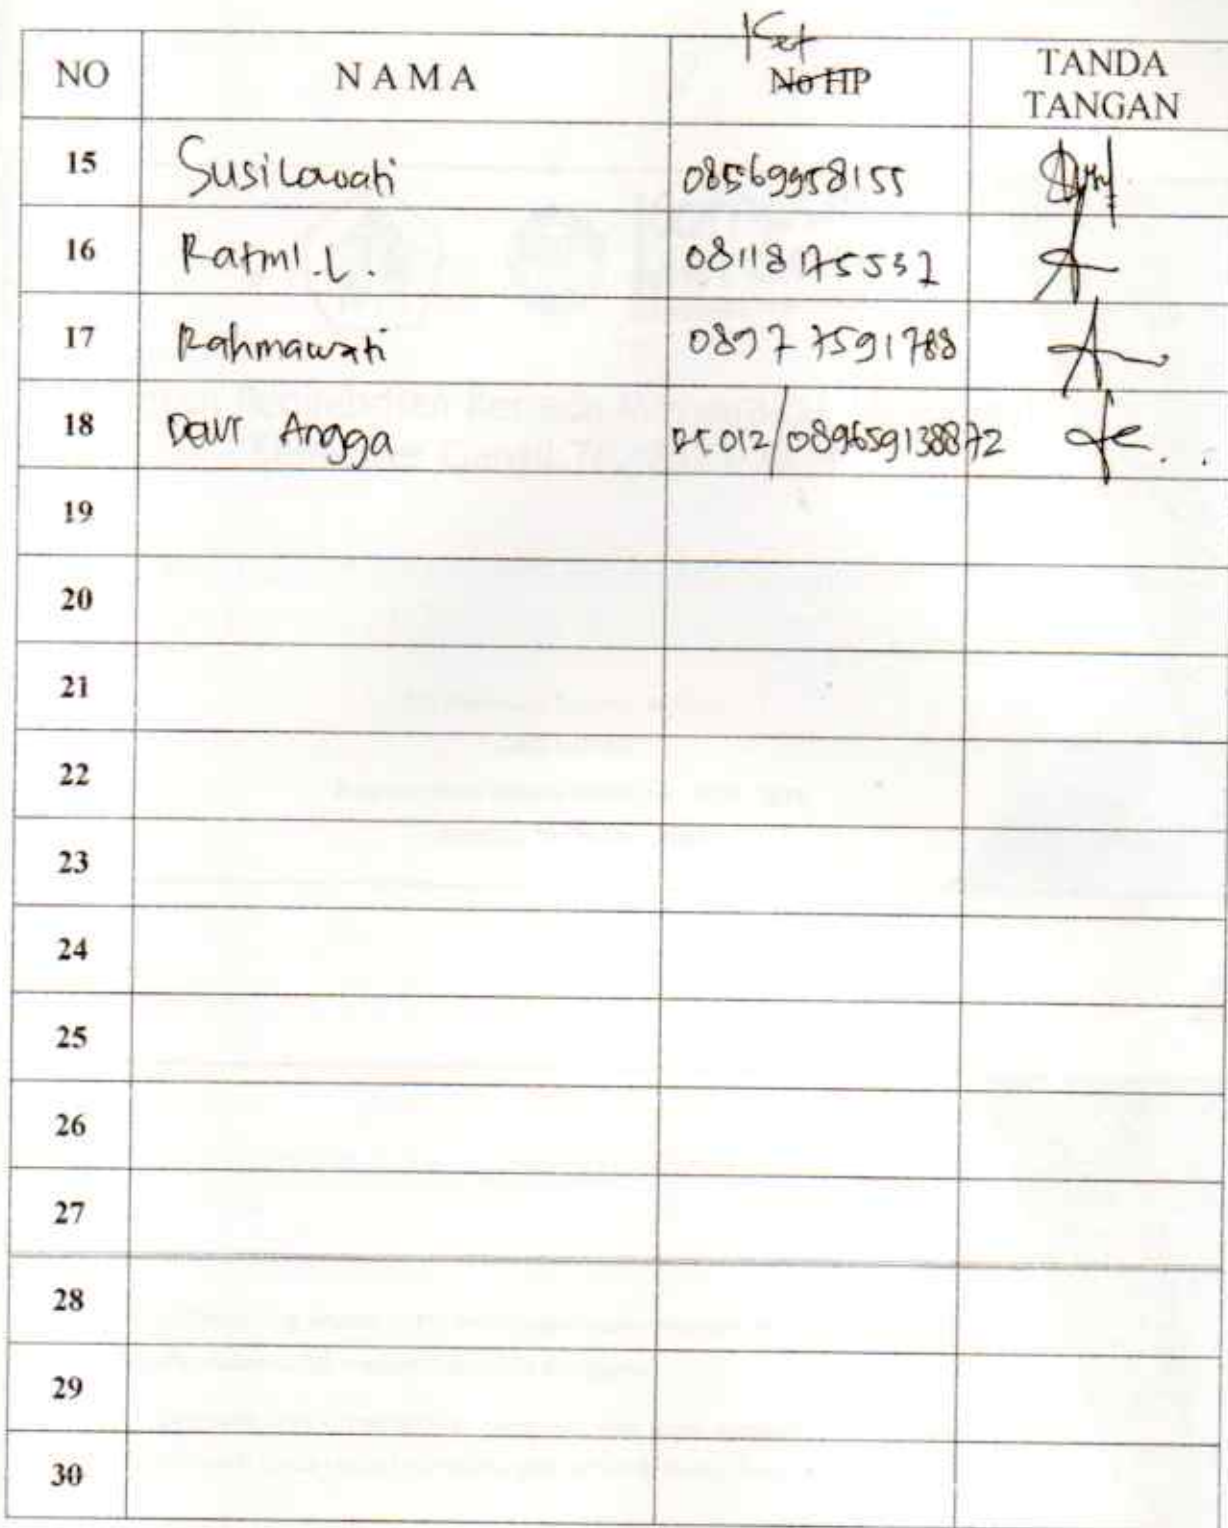 Ket
NO NAMA No HP TANDA TANGAN
15 Susilawati 08569958155
16 Ratmi.L. 08118175532
17 Rahmawati 089777591788
18 Dewi Angga 012/089659138872
19
20
21
22
23
24
25
26
27
28
29
30